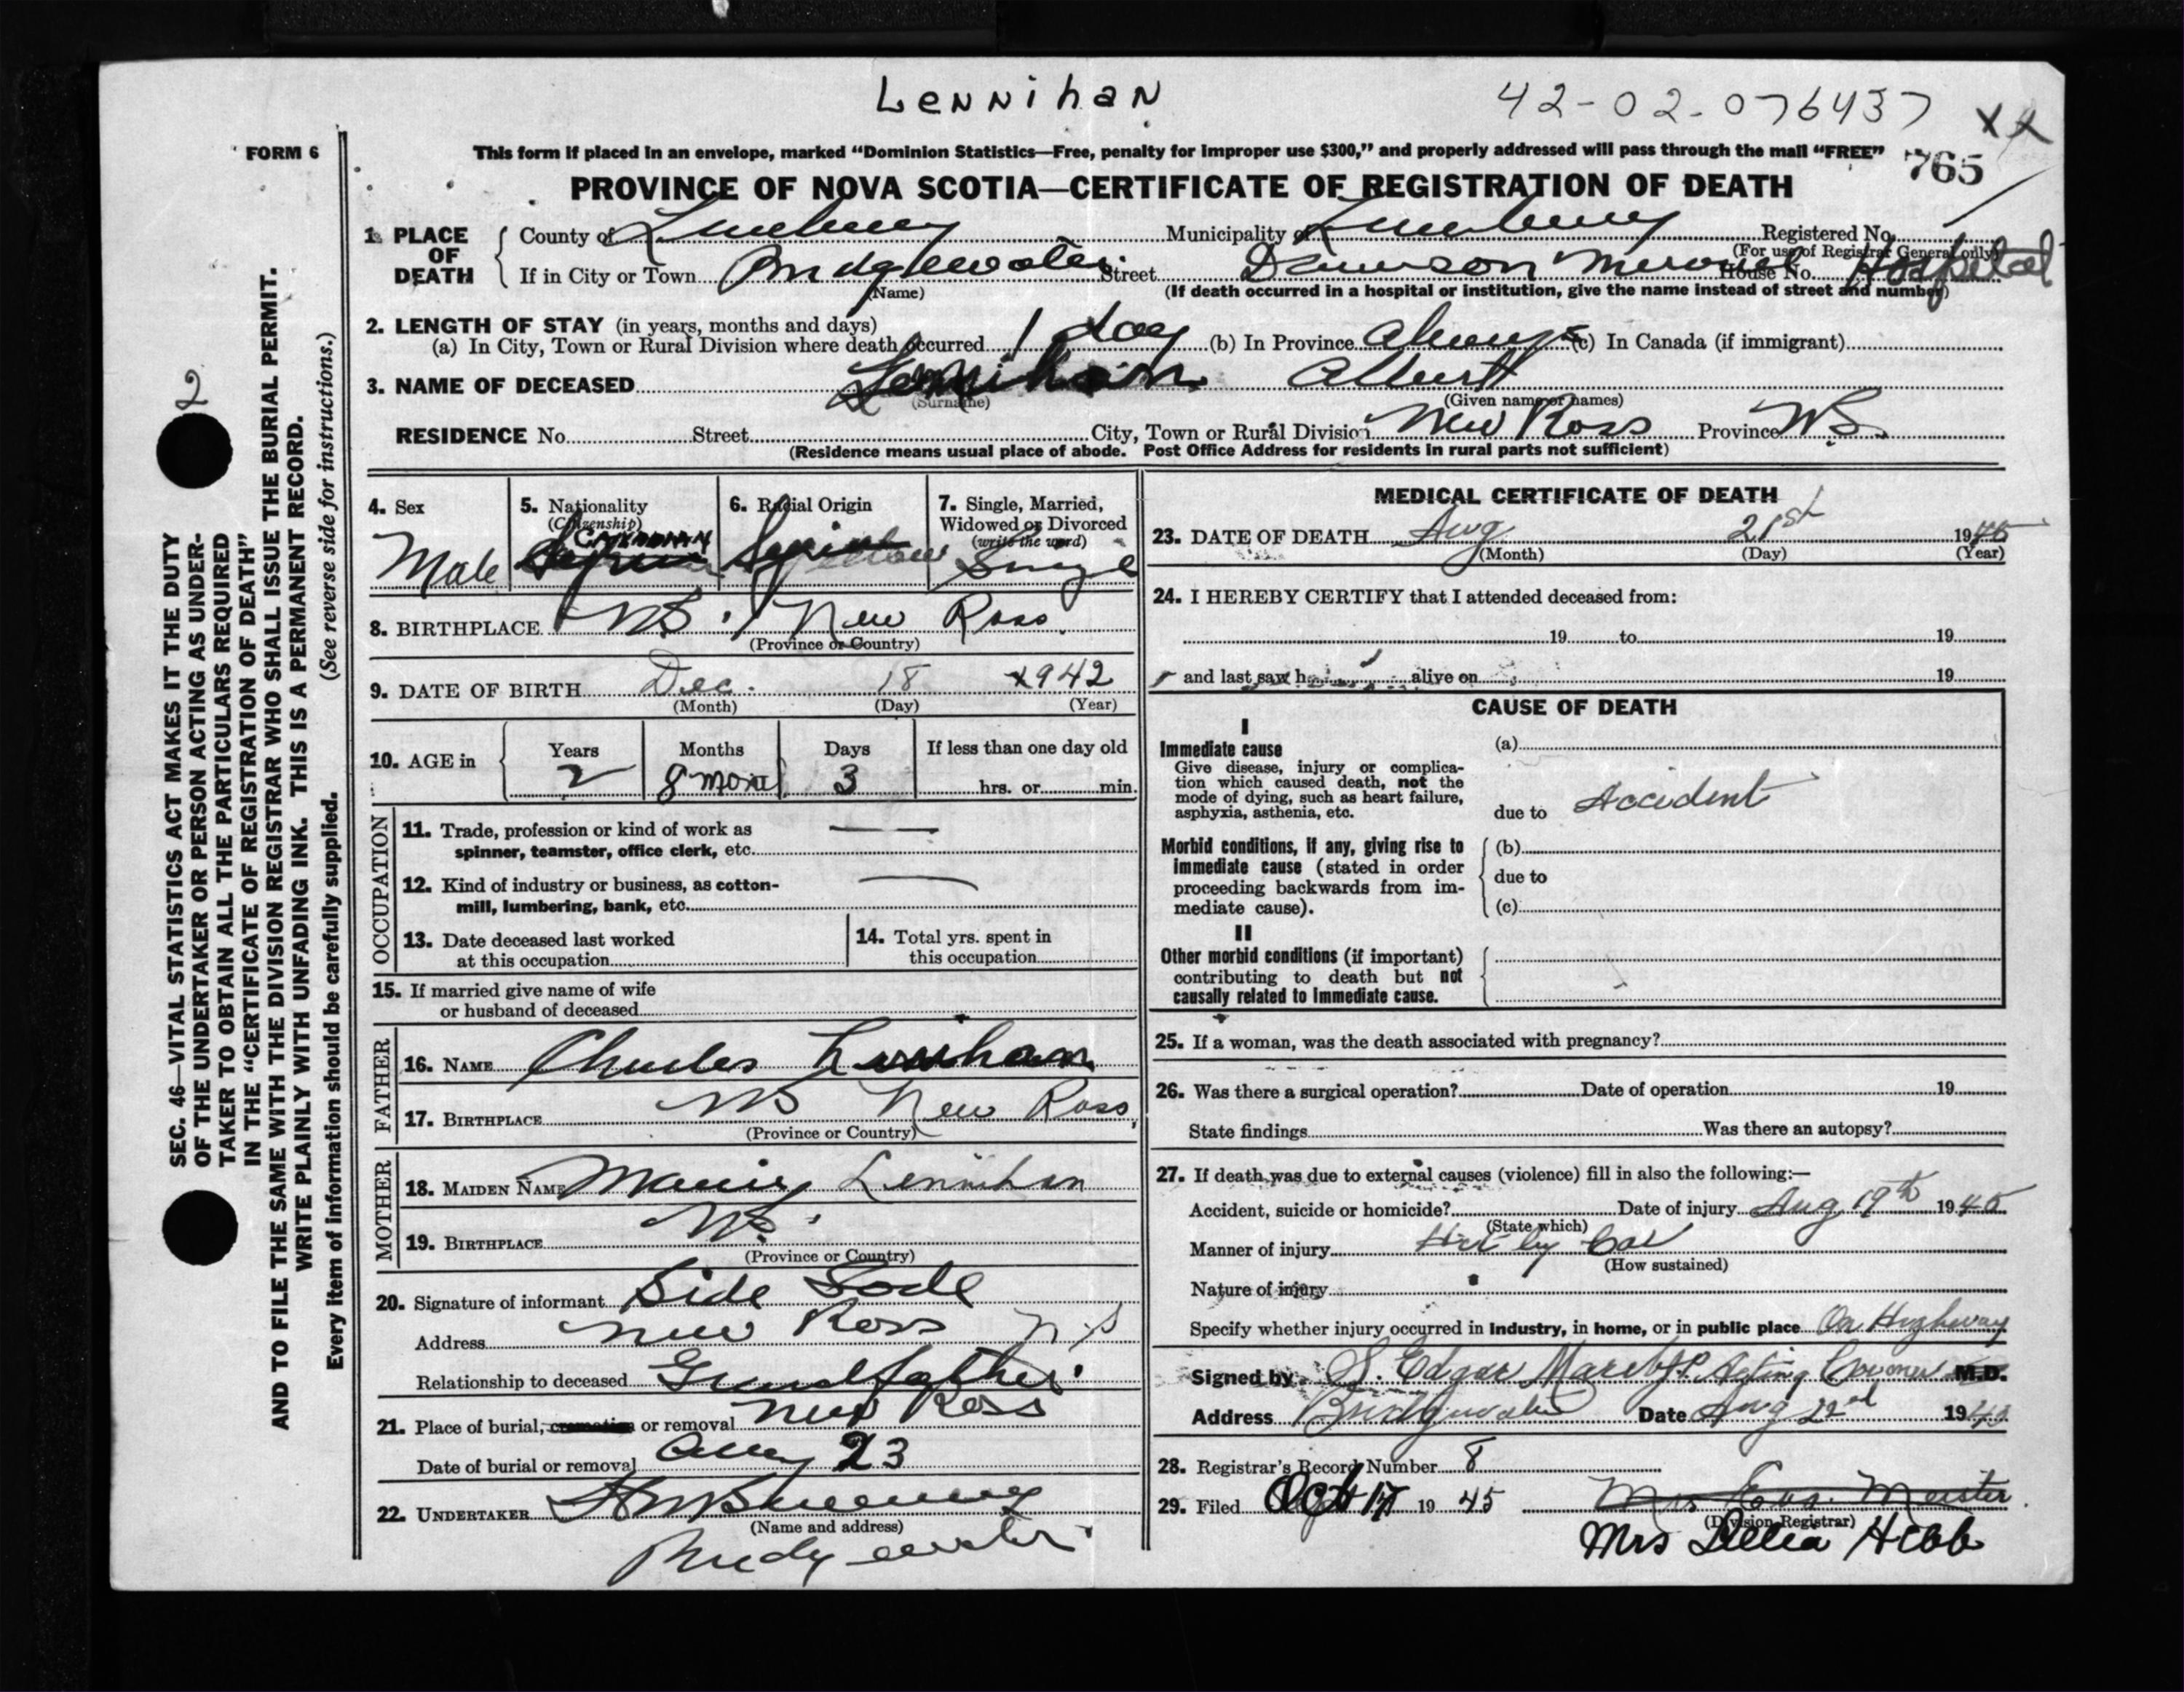 Lennihan
42-02-076437
XX
FORM 6
This form if placed in an envelope, marked “Dominion Statistics—Free, penalty for improper use $300,” and properly addressed will pass through the mail “FREE”
765
PROVINCE OF NOVA SCOTIA—CERTIFICATE OF REGISTRATION OF DEATH
1. PLACE OF DEATH
County of Lunenburg Municipality of Lunenburg Registered No.
(For use of Registrar General only)
If in City or Town Bridgewater Street Dawson Memorial House No. Hospital
(Name) (If death occurred in a hospital or institution, give the name instead of street and number)
2. LENGTH OF STAY (in years, months and days)
(a) In City, Town or Rural Division where death occurred 1 day (b) In Province always (c) In Canada (if immigrant)
3. NAME OF DECEASED Lennihan Albert
(Surname) (Given name or names)
RESIDENCE No. Street City, Town or Rural Division New Ross Province N.S.
(Residence means usual place of abode. Post Office Address for residents in rural parts not sufficient)
4. Sex
Male
5. Nationality
(Citizenship)
Canadian
6. Racial Origin
7. Single, Married,
Widowed or Divorced
(write the word)
Single
8. BIRTHPLACE NS. New Ross.
(Province or Country)
9. DATE OF BIRTH Dec. 18 1942
(Month) (Day) (Year)
10. AGE in
Years Months Days If less than one day old
2 8 3 hrs. or min.
OCCUPATION
11. Trade, profession or kind of work as
spinner, teamster, office clerk, etc.
12. Kind of industry or business, as cotton-
mill, lumbering, bank, etc.
13. Date deceased last worked
at this occupation
14. Total yrs. spent in
this occupation
15. If married give name of wife
or husband of deceased
FATHER
16. NAME Charles Lennihan
17. BIRTHPLACE NS New Ross,
(Province or Country)
MOTHER
18. MAIDEN NAME Lennihan
19. BIRTHPLACE NS.
(Province or Country)
20. Signature of informant Side
Address New Ross N.S
Relationship to deceased Grandfather
21. Place of burial, cremation or removal New Ross
Date of burial or removal Aug 23
22. UNDERTAKER
(Name and address)
Bridgewater
MEDICAL CERTIFICATE OF DEATH
23. DATE OF DEATH Aug 21st 1945
(Month) (Day) (Year)
24. I HEREBY CERTIFY that I attended deceased from:
19 to 19
and last saw h alive on 19
CAUSE OF DEATH
I
Immediate cause
Give disease, injury or complica-
tion which caused death, not the
mode of dying, such as heart failure,
asphyxia, asthenia, etc.
(a)
due to Accident
Morbid conditions, if any, giving rise to
immediate cause (stated in order
proceeding backwards from im-
mediate cause).
(b)
due to
(c)
II
Other morbid conditions (if important)
contributing to death but not
causally related to immediate cause.
25. If a woman, was the death associated with pregnancy?
26. Was there a surgical operation? Date of operation 19
State findings Was there an autopsy?
27. If death was due to external causes (violence) fill in also the following:—
Accident, suicide or homicide? Date of injury Aug 19th 1945
(State which)
Manner of injury Hit by Car
(How sustained)
Nature of injury
Specify whether injury occurred in industry, in home, or in public place On Highway
Signed by S. Edgar March J.P. Acting Coroner M.D.
Address Bridgewater Date Aug 22nd 1945
28. Registrar's Record Number 8
29. Filed Oct 17 19 45 Mrs Eva Meister
(Division Registrar)
Mrs Delia Hebb
2
SEC. 46—VITAL STATISTICS ACT MAKES IT THE DUTY
OF THE UNDERTAKER OR PERSON ACTING AS UNDER-
TAKER TO OBTAIN ALL THE PARTICULARS REQUIRED
IN THE “CERTIFICATE OF REGISTRATION OF DEATH”
AND TO FILE THE SAME WITH THE DIVISION REGISTRAR WHO SHALL ISSUE THE BURIAL PERMIT.
WRITE PLAINLY WITH UNFADING INK. THIS IS A PERMANENT RECORD.
Every item of information should be carefully supplied. (See reverse side for instructions.)